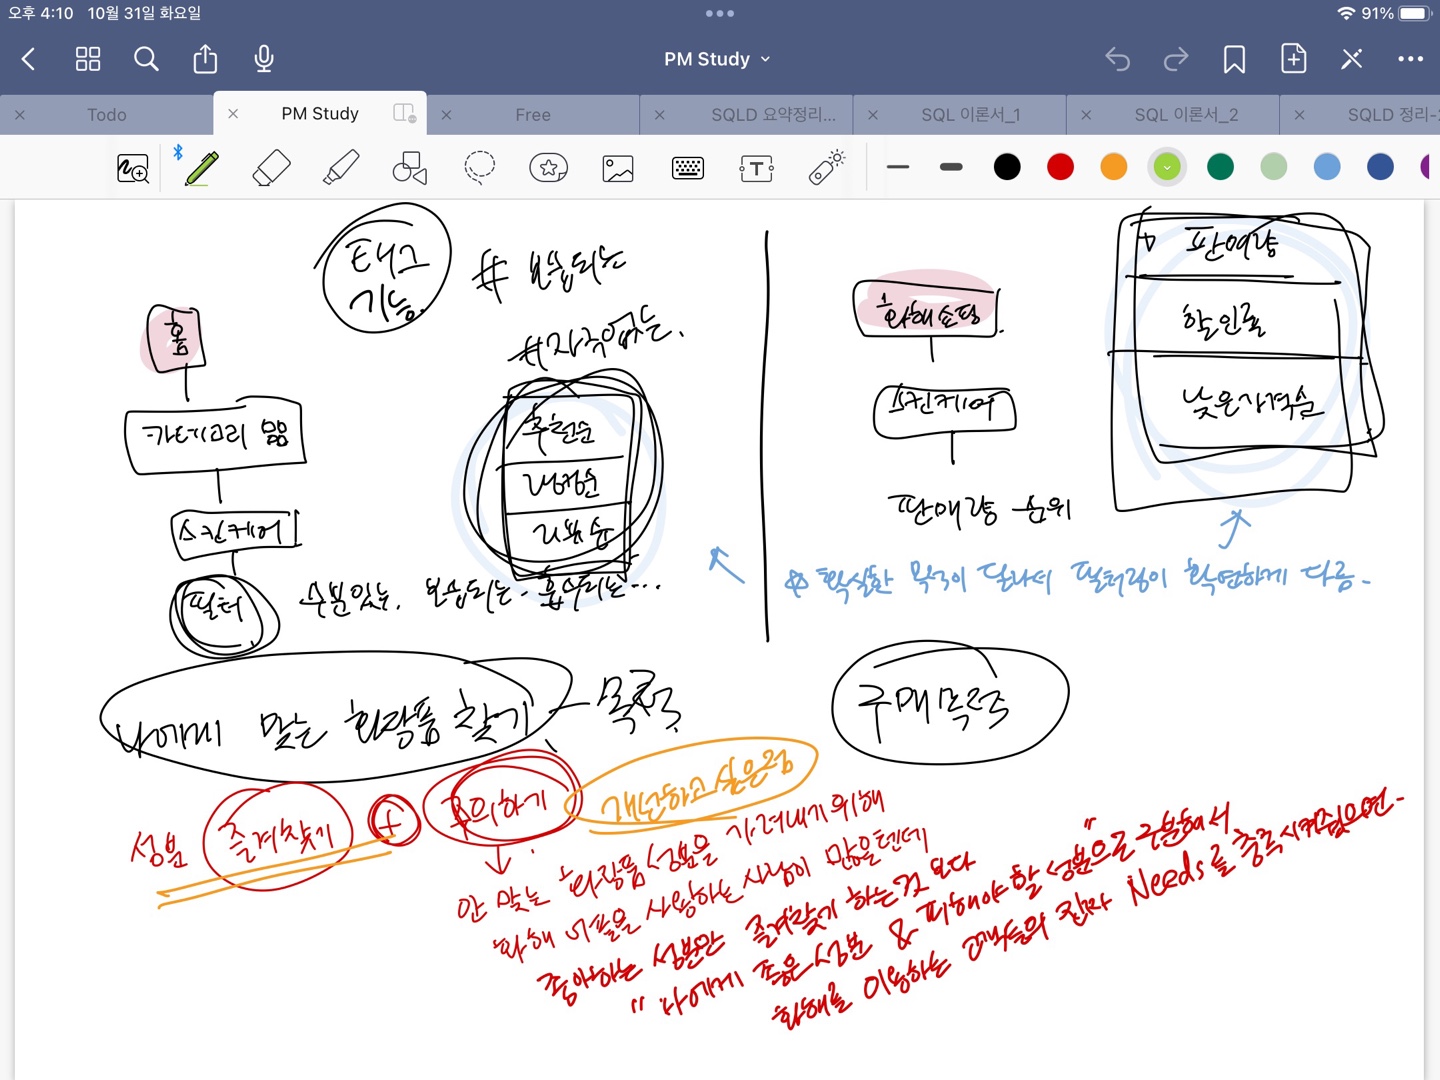 오후 4:10 10월 31일 화요일
91%
PM Study
Todo
PM Study
Free
SQLD 요약정리...
SQL 이론서_1
SQL 이론서_2
SQLD 정리-
태그
기능
# 보습되는
#자극없는.
홈
카테고리 명
스킨케어
필터
추천순
랭킹순
리뷰순
수분있는. 보습되는. 흡수되는...
화해쇼핑
스킨케어
판매량 순위
판매량
할인율
낮은가격순
확실한 목적이 달라서 필터링이 확연하게 다름.
나에게 맞는 화장품 찾기 - 목적
구매목적
성분 즐겨찾기 + 주의하기
개선하고 싶은점
안 맞는 화장품 성분을 가려내기 위해
화해 어플을 사용하는 사람이 많을텐데
좋아하는 성분만 즐겨찾기 하는것 보다
"나에게 좋은 성분 & 피해야 할 성분으로 구분해서"
화해를 이용하는 고객들의 진짜 Needs를 충족시켜줬으면.